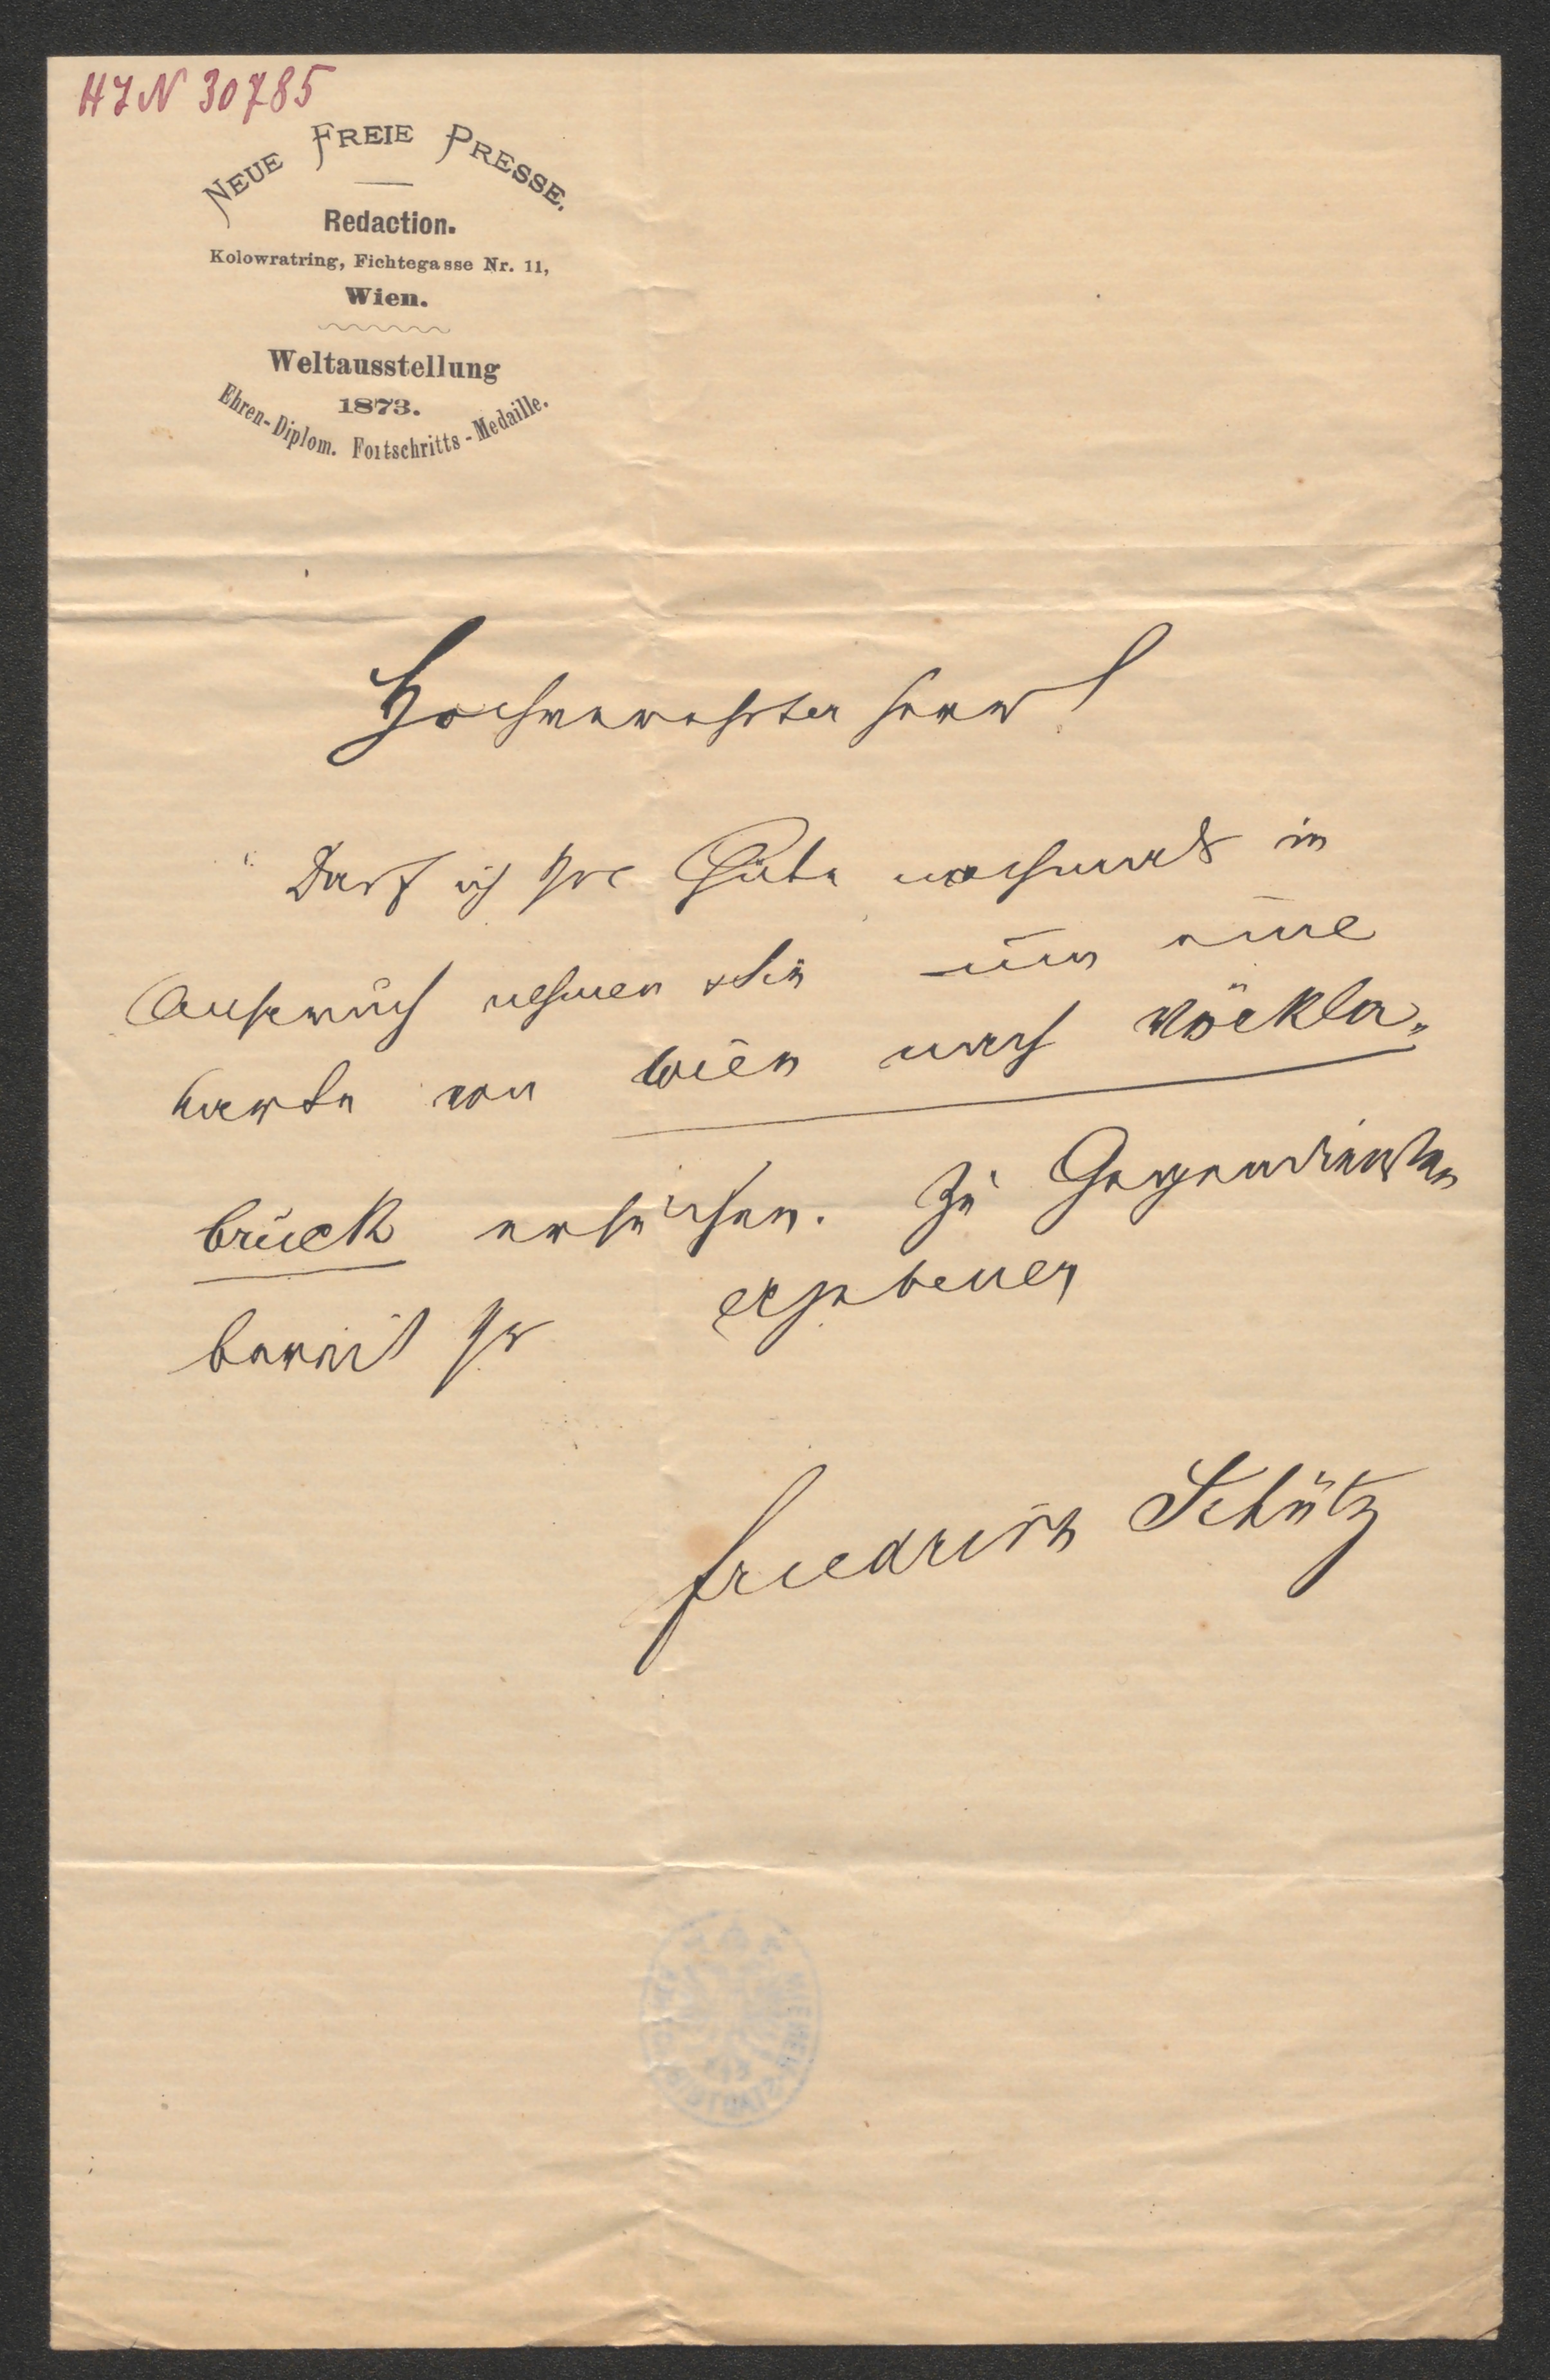 HIN 30785
NEUE FREIE PRESSE.
Redaction.
Kolowratring, Fichtegasse Nr. 11,
Wien.
Weltausstellung
1873.
Ehren-Diplom. Fortschritts-Medaille.
Hochverehrter Herr!
Darf ich Ihre Güte nochmals in
Anspruch nehmen u. Sie um eine
Karte von Wien nach Vöckla„
bruck ersuchen. Zu Gegendiensten
bereit Ihr ergebener
Friedrich Schütz